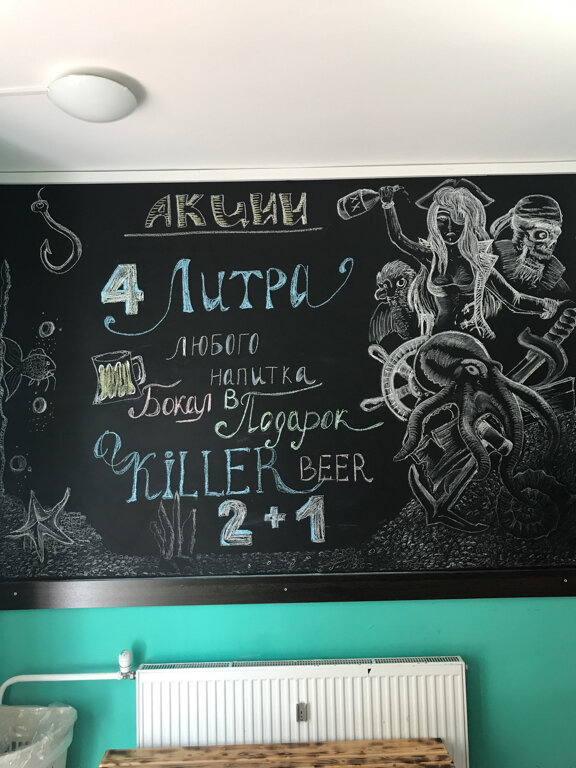 АКЦИИ
4 Литра
любого
напитка
Бокал в Подарок
KiLLER BEER
2+1